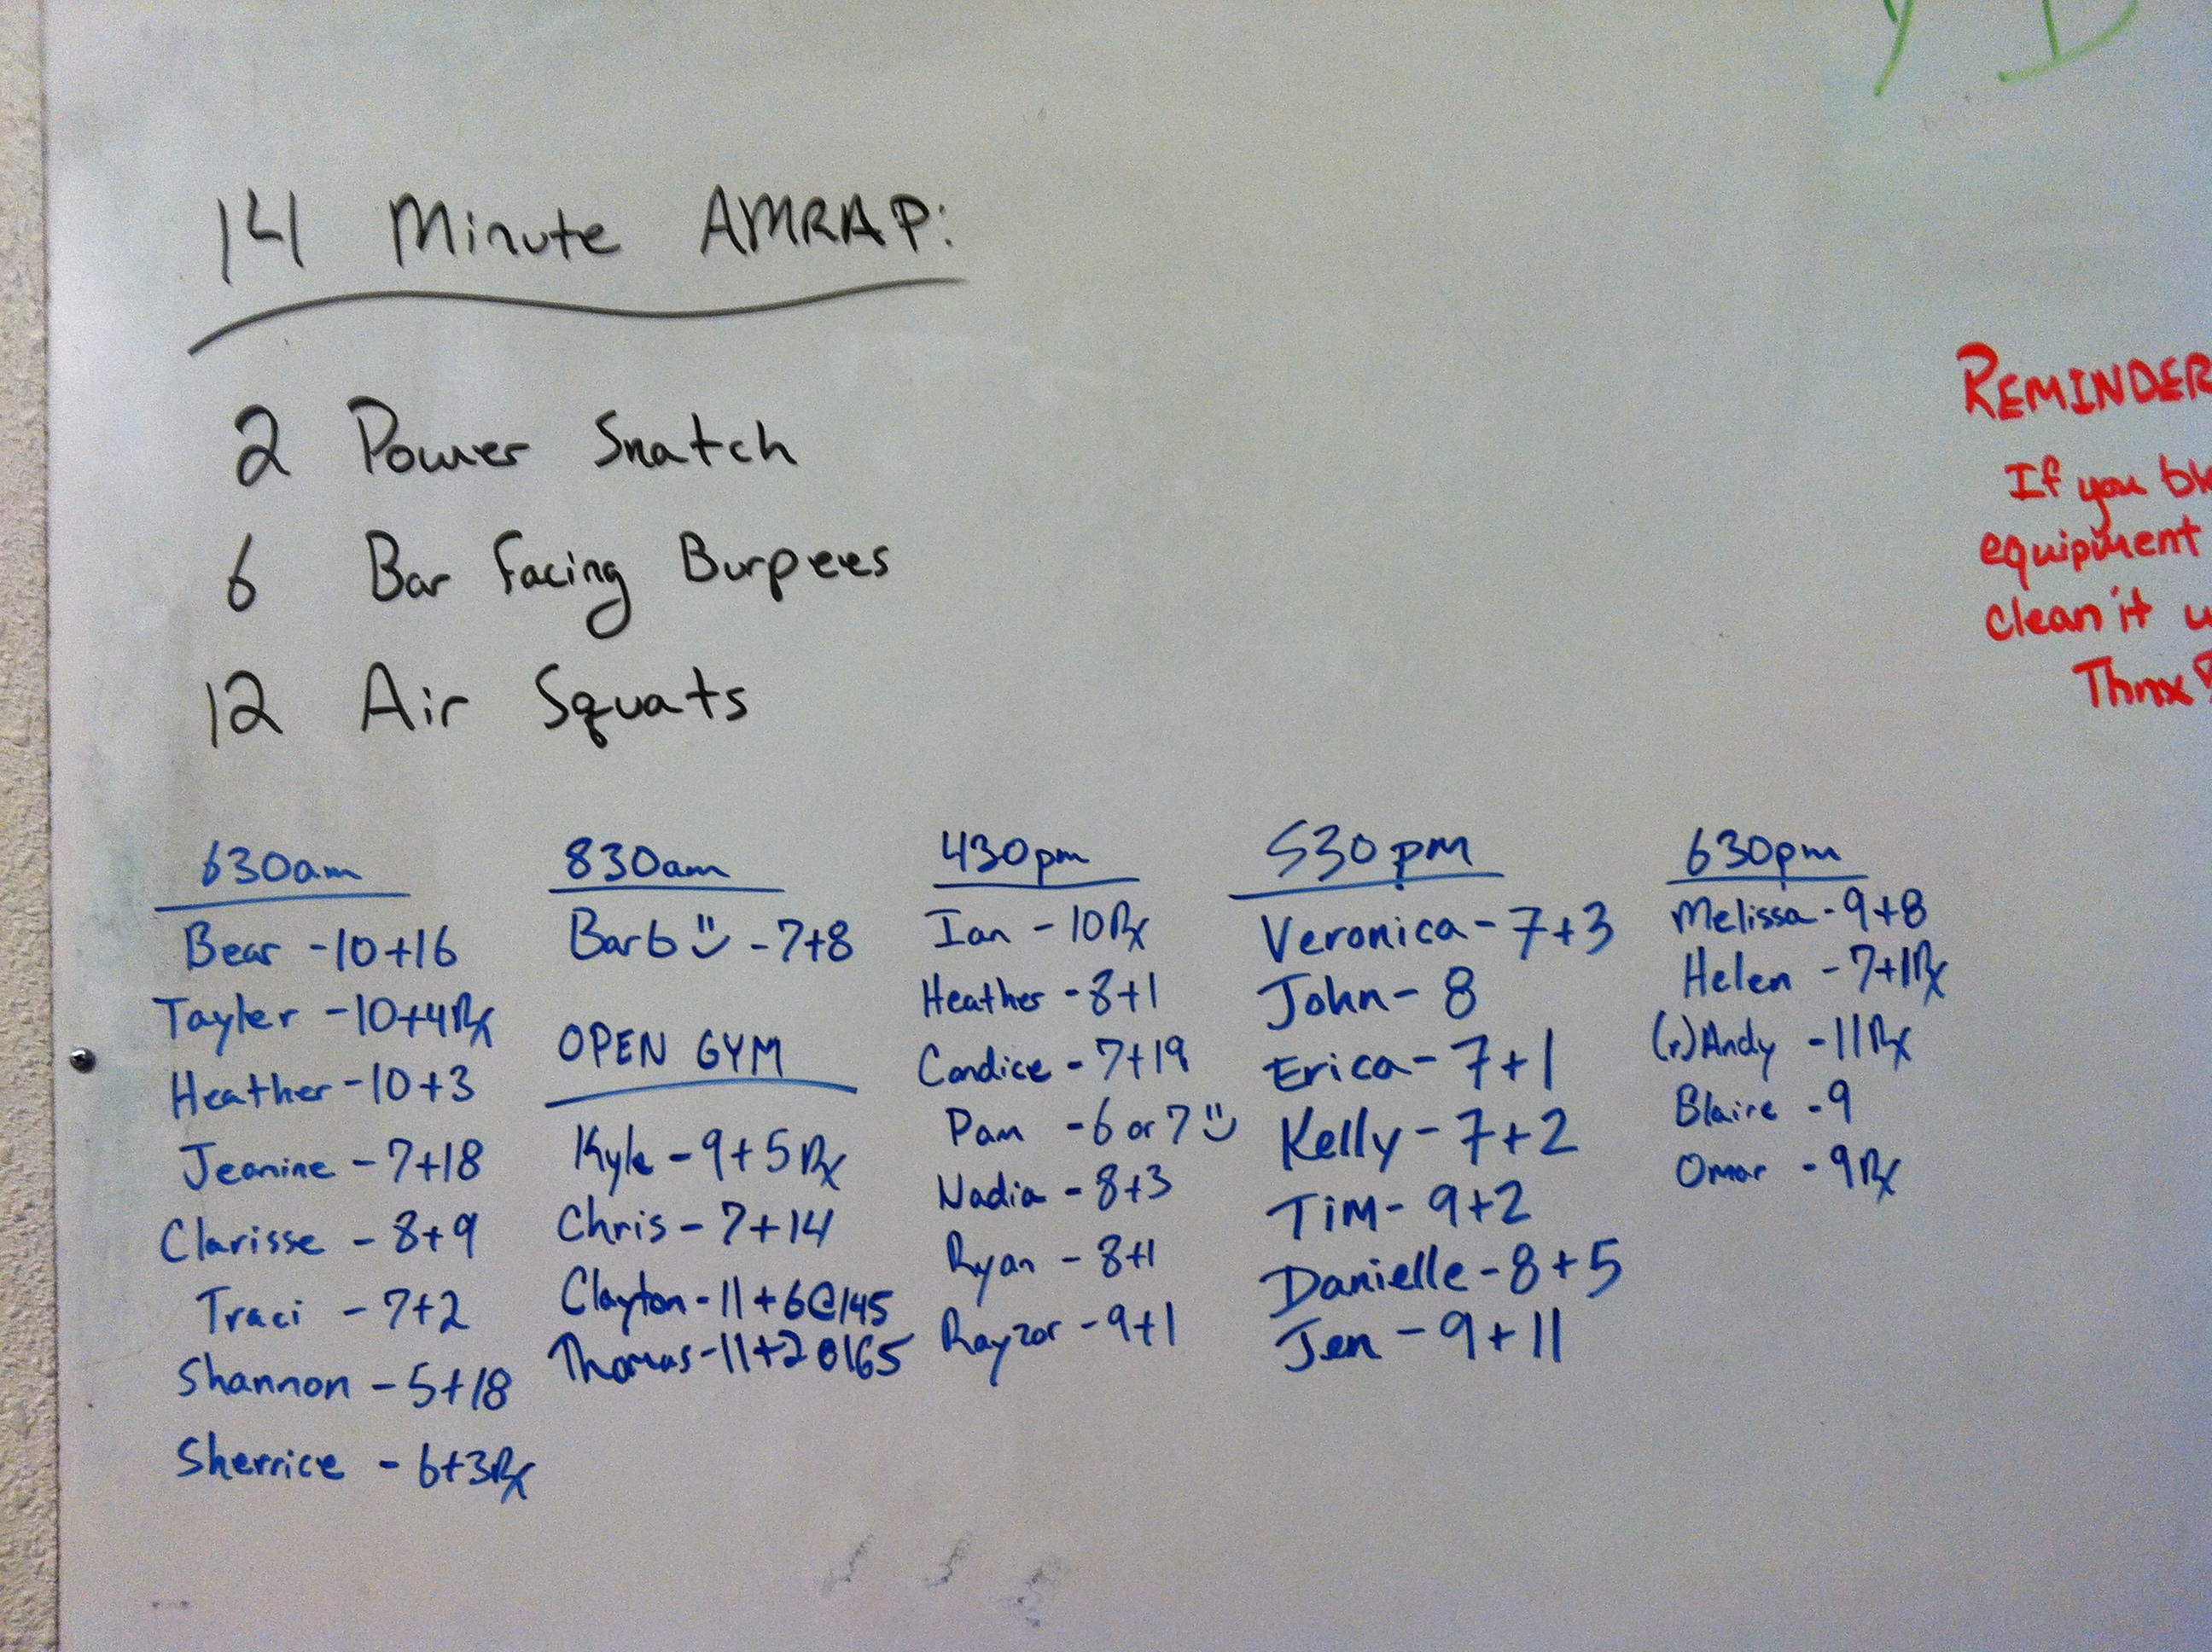 14 Minute AMRAP:
2 Power Snatch
6 Bar Facing Burpees
12 Air Squats
630am
Bear - 10+16
Tayler - 10+4 Rx
Heather - 10+3
Jeanine - 7+18
Clarisse - 8+9
Traci - 7+2
Shannon - 5+18
Sherrice - 6+3 Rx
830am
Barb :) - 7+8
OPEN GYM
Kyle - 9+5 Rx
Chris - 7+14
Clayton - 11+6@145
Thomas - 11+2@165
430pm
Ian - 10 Rx
Heather - 8+1
Candice - 7+19
Pam - 6 or 7 :)
Nadia - 8+3
Ryan - 8+1
Rayzor - 9+1
530pm
Veronica - 7+3
John - 8
Erica - 7+1
Kelly - 7+2
Tim - 9+2
Danielle - 8+5
Jen - 9+11
630pm
Melissa - 9+8
Helen - 7+1 Rx
(r)Andy - 11 Rx
Blaire - 9
Omar - 9 Rx
REMINDER
If you
equipment
clean it
Thnx